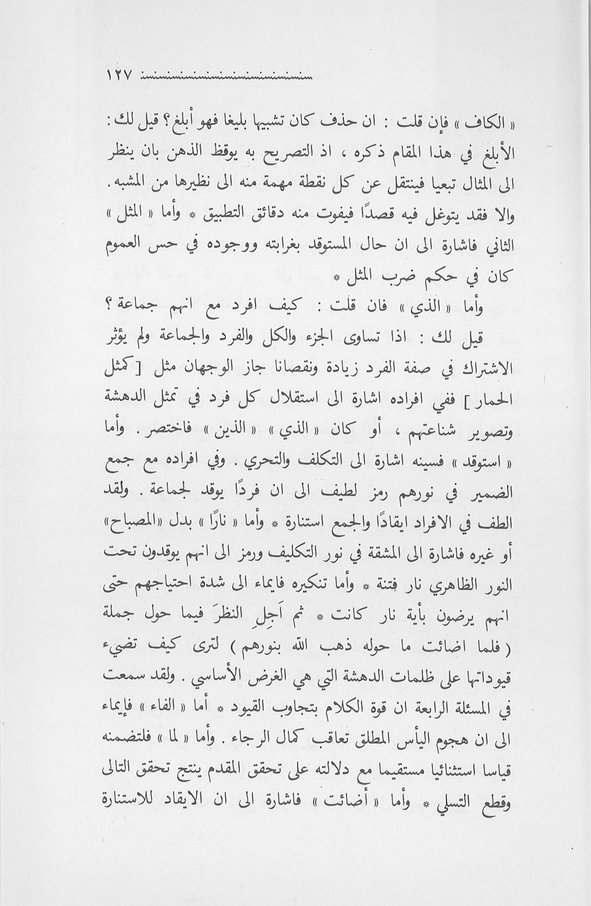 ١٢٧
« الكاف » فإن قلت : ان حذف كان تشبيها بليغا فهو أبلغ ؟ قيل لك :
الأبلغ في هذا المقام ذكره ، اذ التصريح به يوقظ الذهن بان ينظر
الى المثال تبعيا فينتقل عن كل نقطة مهمة منه الى نظيرها من المشبه .
والا فقد يتوغل فيه قصدًا فيفوت منه دقائق التطبيق * وأما « المثل »
الثاني فاشارة الى ان حال المستوقد بغرابته ووجوده في حس العموم
كان في حكم ضرب المثل *
وأما « الذي » فان قلت : كيف افرد مع انهم جماعة ؟
قيل لك : اذا تساوى الجزء والكل والفرد والجماعة ولم يؤثر
الاشتراك في صفة الفرد زيادة ونقصانا جاز الوجهان مثل [ كمثل
الحمار ] ففي افراده اشارة الى استقلال كل فرد في تمثل الدهشة
وتصوير شناعتهم ، أو كان « الذي » « الذين » فاختصر . وأما
« استوقد » فسينه اشارة الى التكلف والتحري . وفي افراده مع جمع
الضمير في نورهم رمز لطيف الى ان فردًا يوقد لجماعة . ولقد
الطف في الافراد ايقادًا والجمع استنارة * وأما « نارًا » بدل «المصباح»
أو غيره فاشارة الى المشقة في نور التكليف ورمز الى انهم يوقدون تحت
النور الظاهري نار فتنة * وأما تنكيره فايماء الى شدة احتياجهم حتى
انهم يرضون بأية نار كانت * ثم اَجِلِ النظرَ فيما حول جملة
( فلما اضائت ما حوله ذهب الله بنورهم ) لترى كيف تضيء
قيوداتها على ظلمات الدهشة التي هي الغرض الأساسي . ولقد سمعت
في المسئلة الرابعة ان قوة الكلام بتجاوب القيود * أما « الفاء » فإيماء
الى ان هجوم اليأس المطلق تعاقب كمال الرجاء . وأما « لما » فلتضمنه
قياسا استثنائيا مستقيما مع دلالته على تحقق المقدم ينتج تحقق التالى
وقطع التسلي * وأما « أضائت » فاشارة الى ان الايقاد للاستنارة